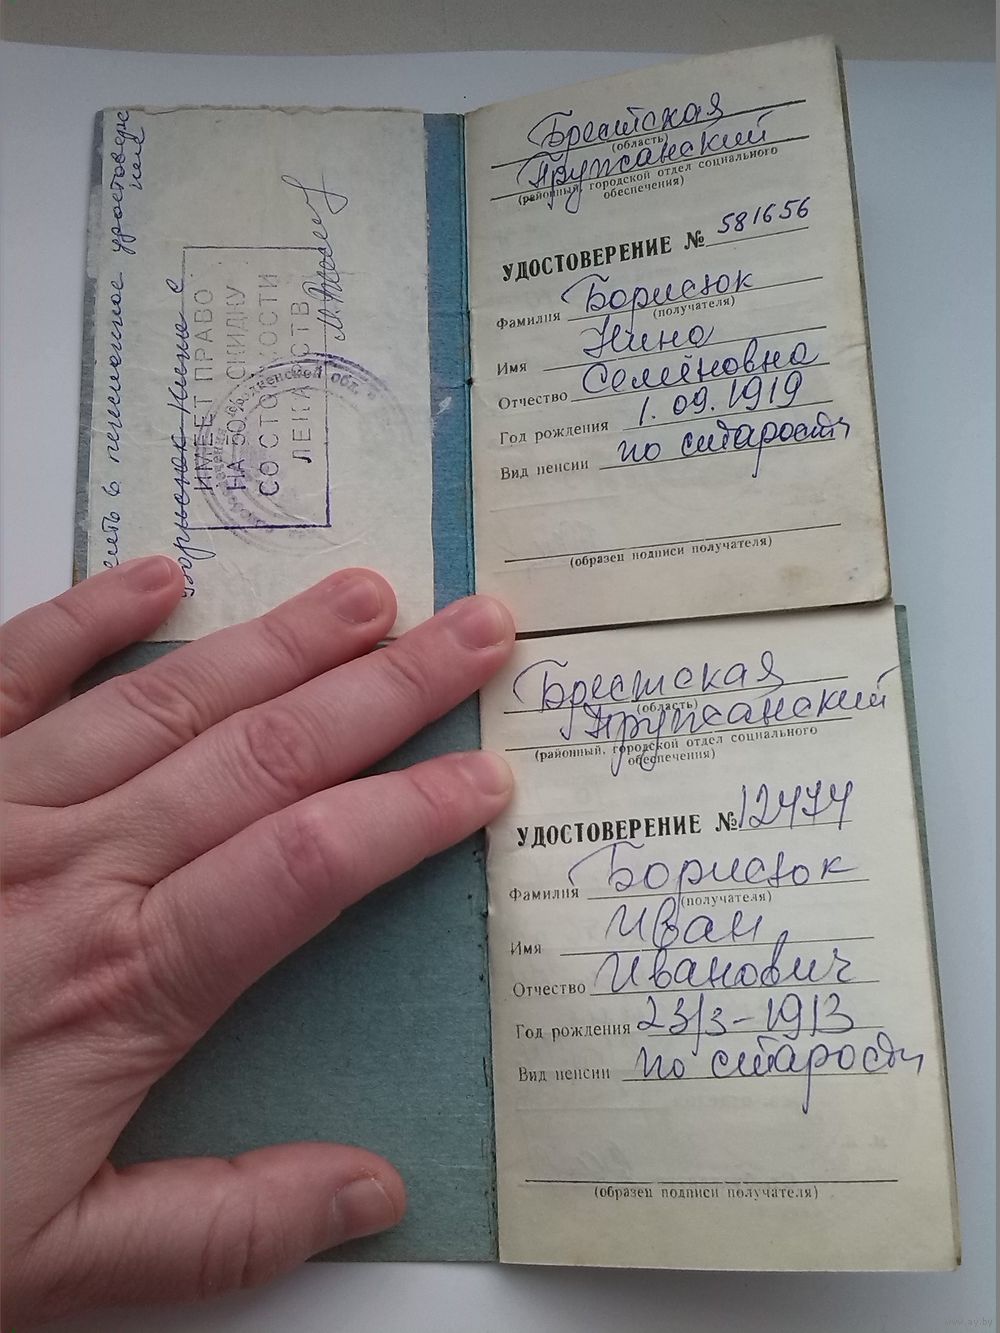 Борисюк Нина С
ИМЕЕТ ПРАВО
НА 50% СКИДКУ
СО СТОИМОСТИ
ЛЕКАРСТВ
Брестская
(область)
Пружанский
(районный, городской отдел социального
обеспечения)
УДОСТОВЕРЕНИЕ № 581656
Фамилия Борисюк
(получателя)
Имя Нина
Отчество Семёновна
Год рождения 1.09.1919
Вид пенсии по старости
(образец подписи получателя)
Брестская
(область)
Пружанский
(районный, городской отдел социального
обеспечения)
УДОСТОВЕРЕНИЕ № 12474
Фамилия Борисюк
(получателя)
Имя Иван
Отчество Иванович
Год рождения 23/3-1913
Вид пенсии по старости
(образец подписи получателя)
www.ay.by